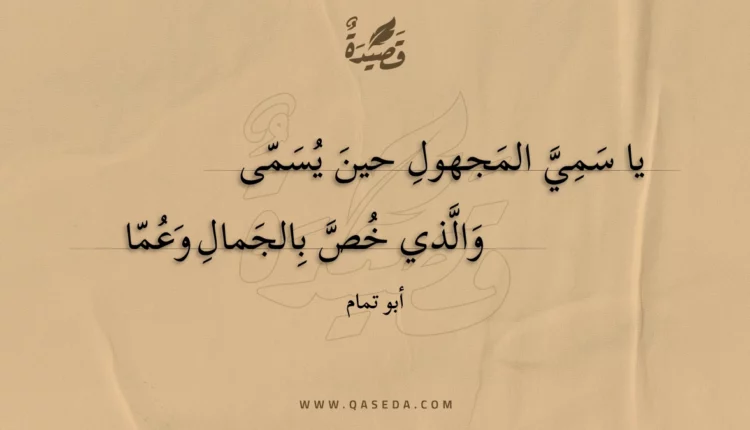 قَصِيدَةٌ
يا سَمِيَّ المَجهولِ حينَ يُسَمّى
وَالَّذي خُصَّ بِالجَمالِ وَعُمّا
أبو تمام
WWW.QASEDA.COM